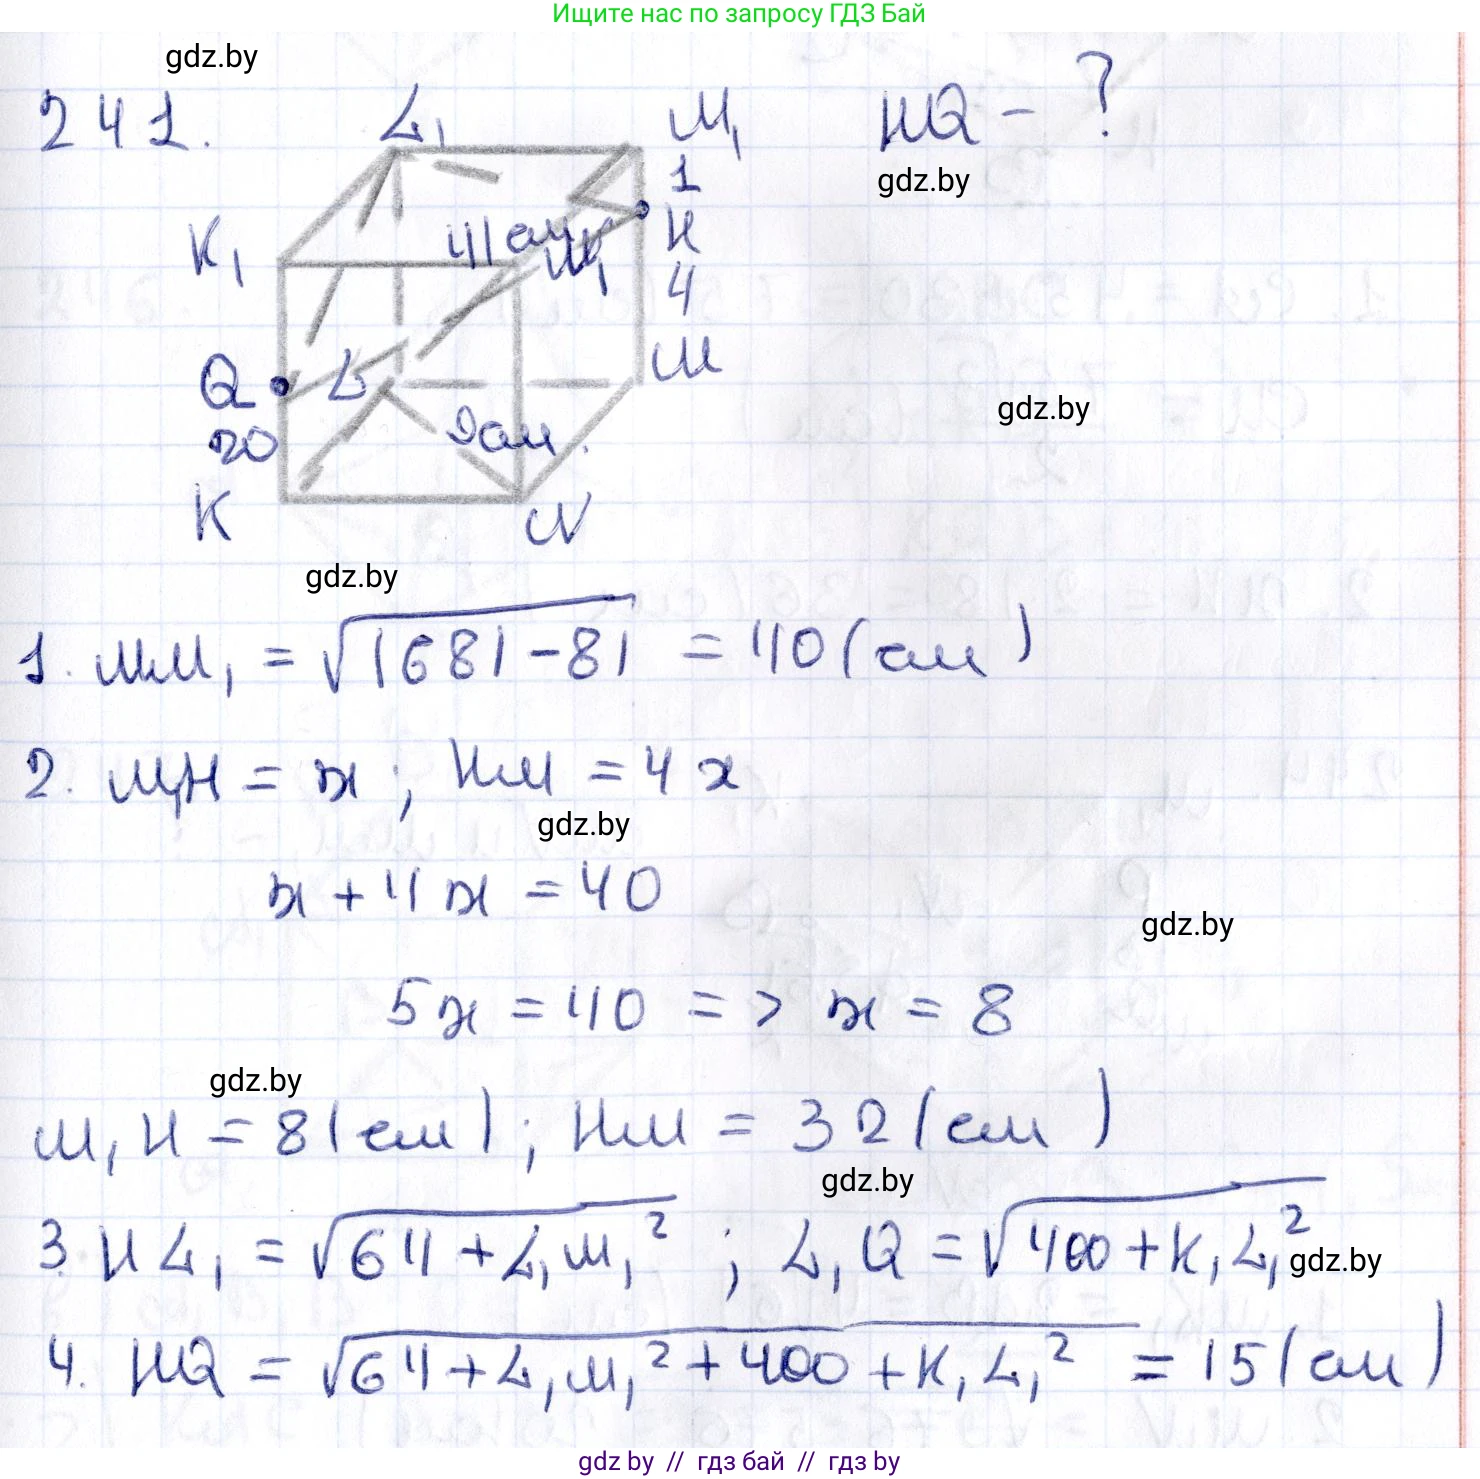 Ищите нас по запросу ГДЗ Бай
gdz.by
241.
L₁
M₁
HQ - ?
gdz.by
1
K₁
41 см
N₁
H
4
M
Q
L
gdz.by
20
9 см
K
N
gdz.by
1. MM₁ = √1681-81 = 40 (см)
2. M₁H = x; HM = 4x
gdz.by
x + 4x = 40
gdz.by
5x = 40 => x = 8
gdz.by
M₁H = 8 (см); HM = 32 (см)
gdz.by
3. HL₁ = √64 + L₁M₁²; L₁Q = √400 + K₁L₁²
gdz.by
4. HQ = √64 + L₁M₁² + 400 + K₁L₁² = 15 (см)
gdz.by // гдз бай // гдз by